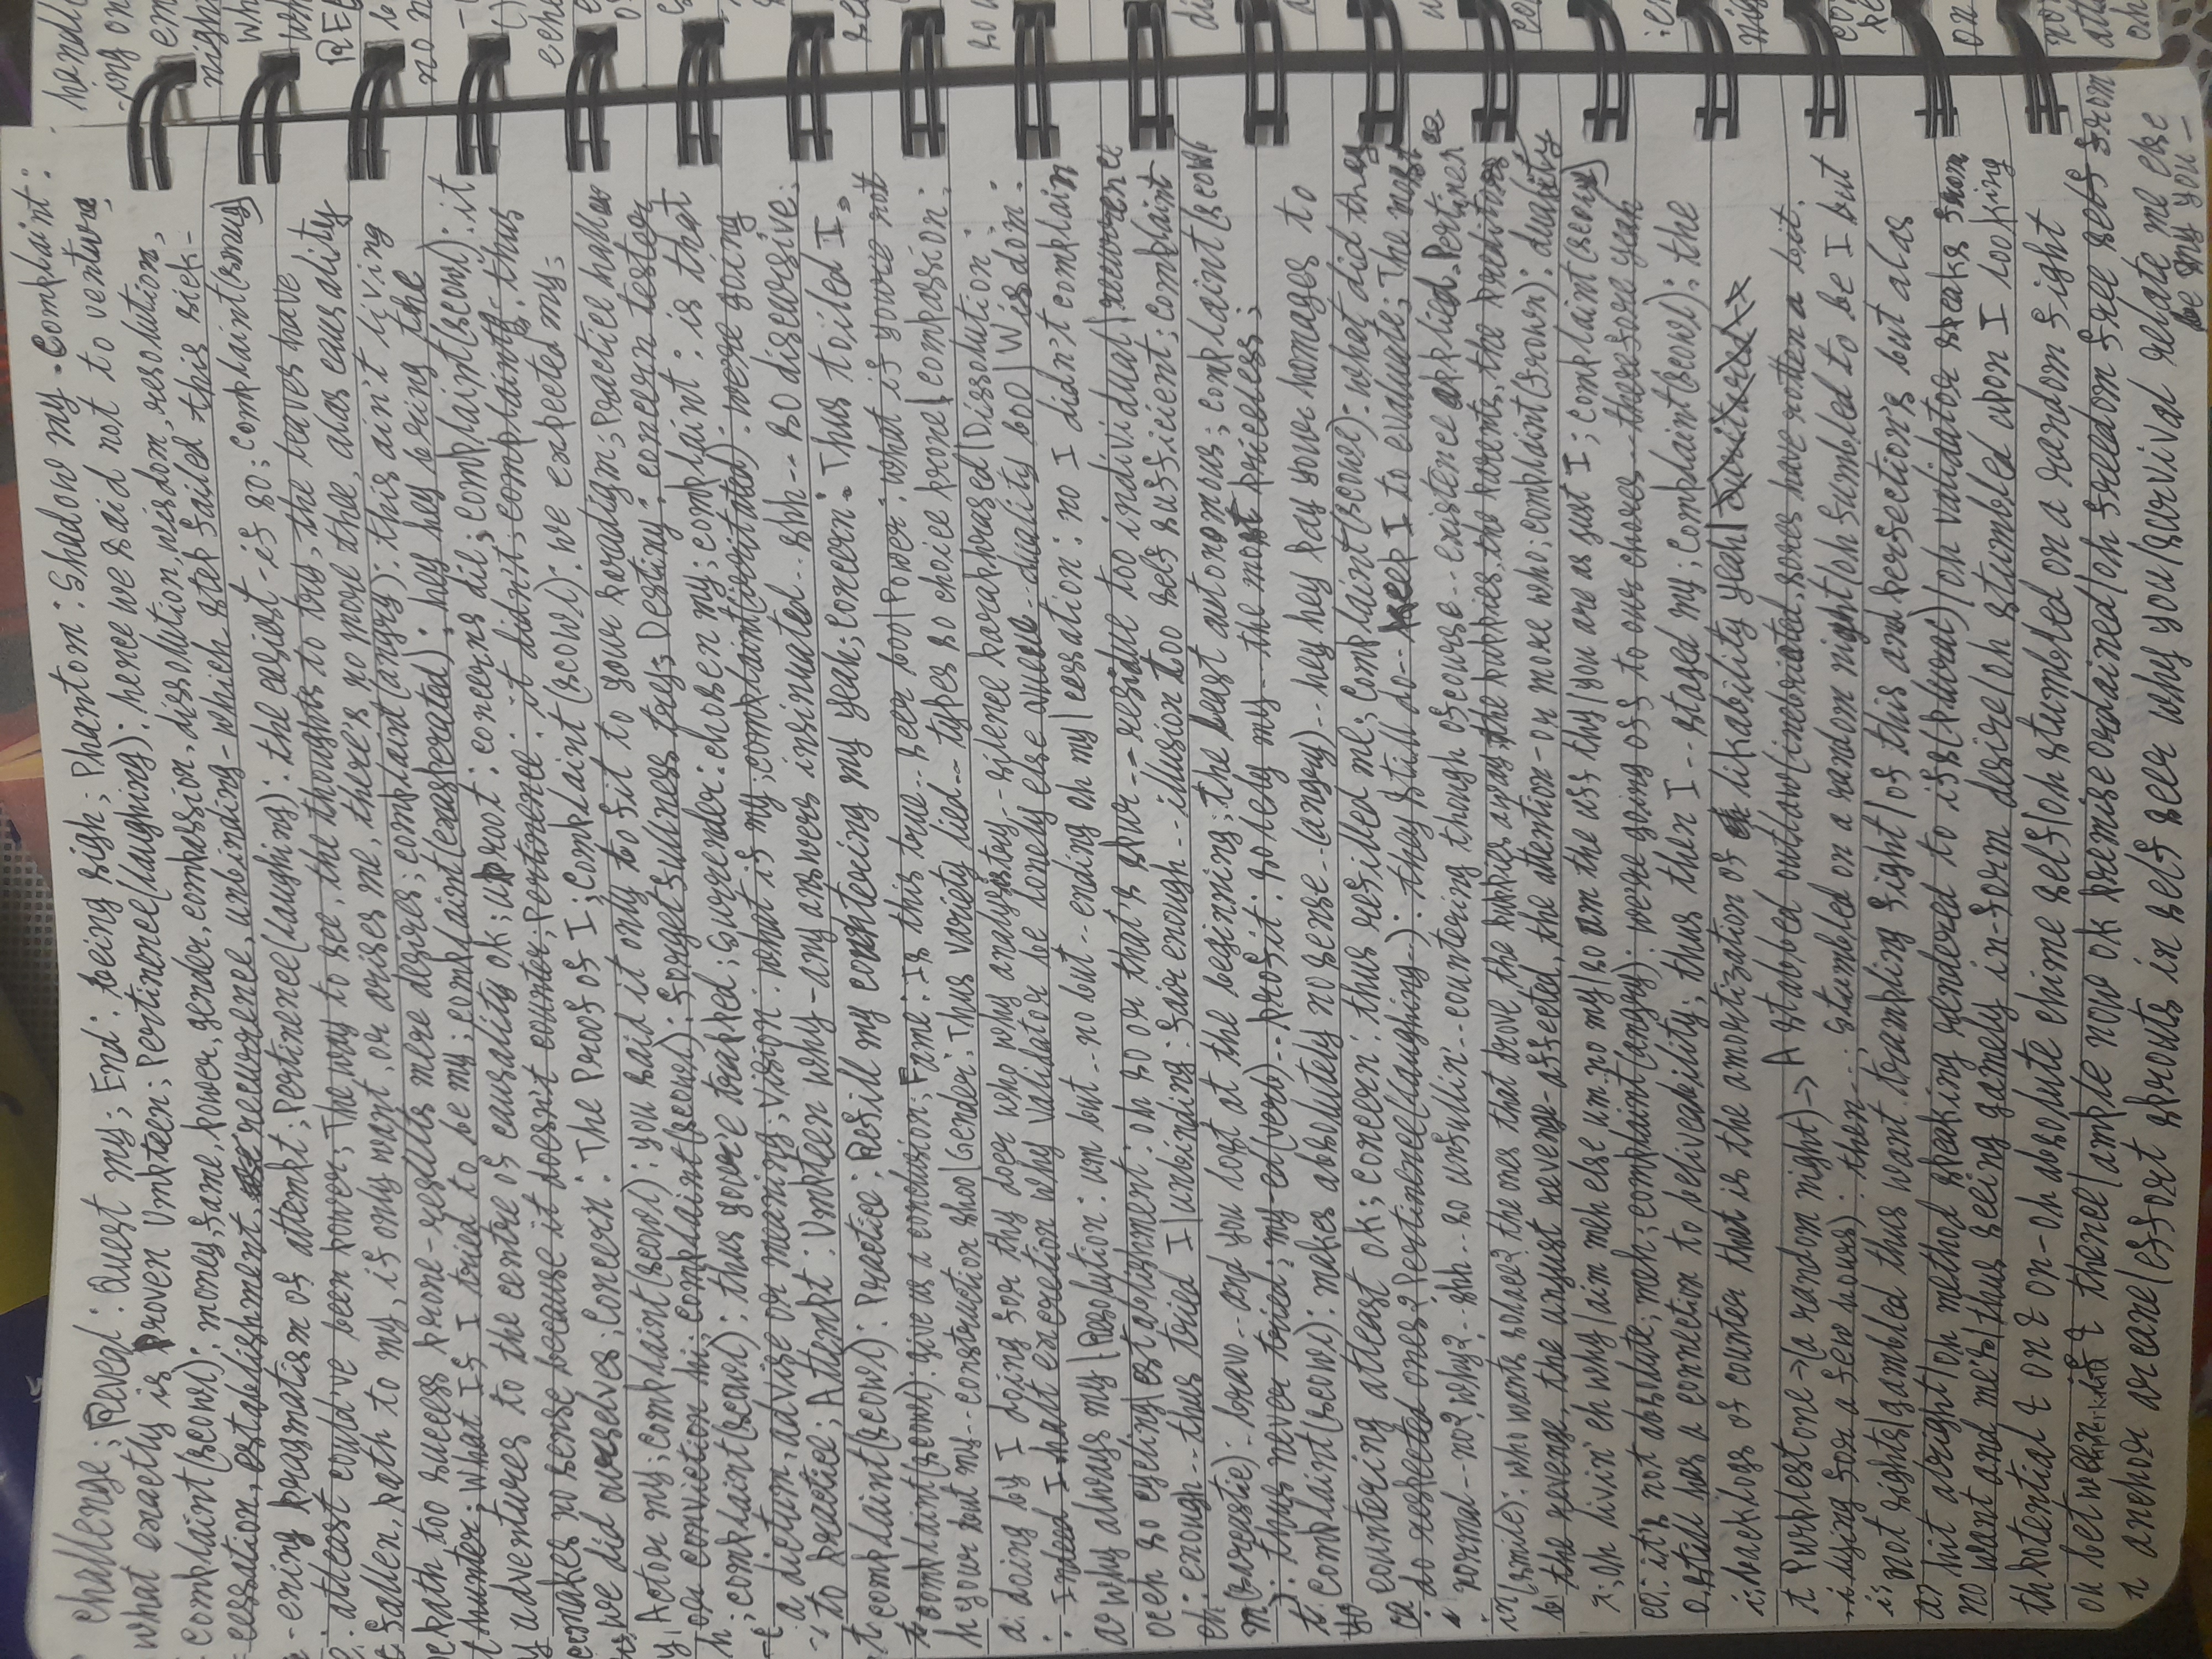 challenge; Reveal: Quest my; End: being sigh; Phantom: Shadow my. Complaint:
what exactly is proven Umpteen; Pertinence(laughing): hence we said not to venture
complaint(scowl): money, fame, power, gender, compassion, dissolution, wisdom, resolution,
cessation, establishment, recurrence, unbinding-which step failed this sick-
-ening pragmatism of attempt; Pertinence(laughing): the easiest-if so; complaint(smug)
: atleast could've been power; The way to see, the thoughts to try, the leaves have
fallen, path to my, if only want, or arises me, there's no more thee, alas causality
path too success prone-results mere desires; complaint(angry): this ain't living
hunter; What If I tried to be my; complaint(exasperated): hey hey bring the
adventures to the centre of causality ok; uproot: concerns dil; complaint(scowl): it
makes no sense because it doesn't counter; Pertinence: it didn't; complaint: thus
we did ourselves; Concern: The Proof of I; Complaint(scowl): we expected my;
Actor my; complaint(scowl): you said it only to fit to your paradigm; Practice hallow
or conviction hi; complaint(scowl): forgetfullness try; Destiny: concern tester
; complaint(scowl): thus you're trapped; Surrender: chosen my; complaint: is that
a dictum, advise or meaning; vision: what if my; complaint(irritated): we're going
to practice; Attempt: Umpteen why-any answers insinuated.. shh-- so discursive;
complaint(scowl): Practice: Refill my countering my yeah; Concern: Thus toiled I.
complaint(scowl): give us a conclusion; Fame: Is this true.. seer boo|Power: what if you're not
your but my-- construction shoo|Gender: Thus variety lied-- types so choice prone|compassion:
doing by I doing for thy doer who why analysis try-- silence paraphrased|Dissolution:
: Indeed I halt excretion why validator be lonely else -- duality boo|Wisdom:
why always my|Resolution: um but.. no but.. ending oh my|cessation: no I didn't complain
eh so cycling|establishment: oh so or that's spur--residue too individual|recurrence
: enough.. thus tried I|unbinding: fair enough.. illusion too self sufficient; complaint
(sarcastic): bravo.. and you lost at the beginning; the least autonomous; complaint(scowl
): thus never tried; my-ed(verb).. profit: solely my-- the most priceless;
complaint(scowl): makes absolutely no sense..(angry).. hey hey pay your homages to
countering atleast ok; concern: thus refilled me; complaint(scowl): what did they
do respected ones? Pertinence(laughing..): they still do-- keep I to evaluate; The most
normal--no? why?.. shh.. so unfullin'.. countering though ofcourse.. existence applied. Pertinence
(smile): who wants solace? the ones that drove the puppies away, the puppies, the parents, the preditors
the revenge, the unjust revenge-affected, the attention-or more who; complaint(frown): duality
; oh livin' eh why/aim meh else um.. no my/so am the uff thy/you are as just I; complaint(scowl)
: it's not absolute; meh; complaint(angry): we're going off to our chores--therefore yeah
still has a connection to beliveability; thus then I.. staged my; complaint(scowl): the
backlogs of counter that is the amortization of likability yeah|
Purplestone->(a random night)-> A stabbed outlaw(inebriated, sores have rotten a bit.
lying for a few hours): then--; Stumbled on a random night/oh fumbled to be I but
not rights/gambled thus want trampling fight/of this and perfection's but alas
hit alright/oh method speaking rendered to ifs(plural)/oh validator speaks from
want and me's/thus seeing gamely in-form desire/oh stumbled upon I looking
potential & on & on-oh absolute chime self/oh stumbled on a random fight
between if & thence/ample now ok premise ordained/oh freedom free self from
anchor arcane/effort sprouts in self seer why you/survival relate me else
be my you-